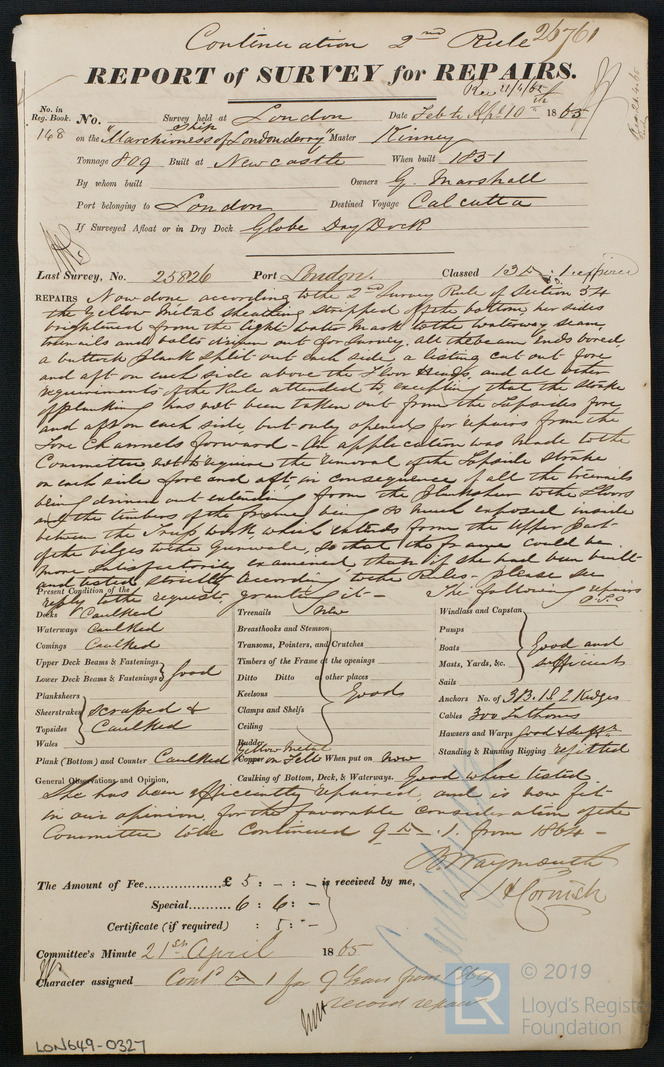 Continuation 2nd Rule 26761
REPORT of SURVEY for REPAIRS.
Rec 21/4/65
No. in Reg. Book. No. Survey held at London Date Feb to Apl 10th 1865
148 on the Ship "Marchioness of Londonderry" Master Kinney
Tonnage 809 Built at Newcastle When built 1851
By whom built Owners G. Marshall
Port belonging to London Destined Voyage Calcutta
If Surveyed Afloat or in Dry Dock Globe Dry Dock
Last Survey, No. 25826 Port London. Classed 13 A 1 expired
REPAIRS Now done, according to the 2nd Survey Rule of Section 54
the Yellow Metal sheathing stripped off the bottom, her sides
brightened from the light water mark to the waterway seam,
treenails and bolts driven out for survey, all the beam ends bored,
a buttock plank split out each side, a listing cut out fore
and aft on each side above the Floor Heads, and all other
requirements of the Rule attended to, excepting that the strake
of planking has not been taken out from the Topsides fore
and aft on each side, but only opened for repairs from the
Fore Channels forward - An application was made to the
Committee not to require the removal of the Topside strake
on each side fore and aft, in consequence of all the treenails
being driven out extending from the Planksheer to the Floors
and the timbers of the frame being so much exposed inside
between the Truss work which extends from the upper part
of the bilges to the Gunwale, so that the frame could be
more satisfactorily examined, than if she had been built
and listed strictly according to the Rules. Please see
reply to the request, granting it - The following repairs
P.T.O
Present Condition of the
Decks Caulked Treenails New Windlass and Capstan
Waterways Caulked Breasthooks and Stemson Pumps
Comings Caulked Transoms, Pointers, and Crutches Boats Good and
Upper Deck Beams & Fastenings Good Timbers of the Frame at the openings Masts, Yards, &c. sufficient
Lower Deck Beams & Fastenings Ditto Ditto at other places Sails
Planksheers Keelsons Good Anchors No. of 3 B. 1 S 2 Kedges
Sheerstrakes scraped & Clamps and Shelfs Cables 300 Fathoms
Topsides Caulked Ceiling Hawsers and Warps Good & Sufft
Wales Rudder Standing & Running Rigging refitted
Plank (Bottom) and Counter Caulked Yellow Metal Copper on Felt When put on now
General Observations and Opinion, Caulking of Bottom, Deck, & Waterways. Good where listed
She has been efficiently repaired, and is now fit
in our opinion, for the favorable consideration of the
Committee to be Continued 9 A .1. from 1864 -
R. Waymouth
J H Cornish
The Amount of Fee £ 5 : - : - is received by me,
Special 6 : 6 : -
Certificate (if required) : 5 : -
Committee's Minute 21st April 1865
Character assigned Contd A 1 for 9 Years from 1864
record repairs
LON649-0327
© 2019
LR
Lloyd's Register
Foundation